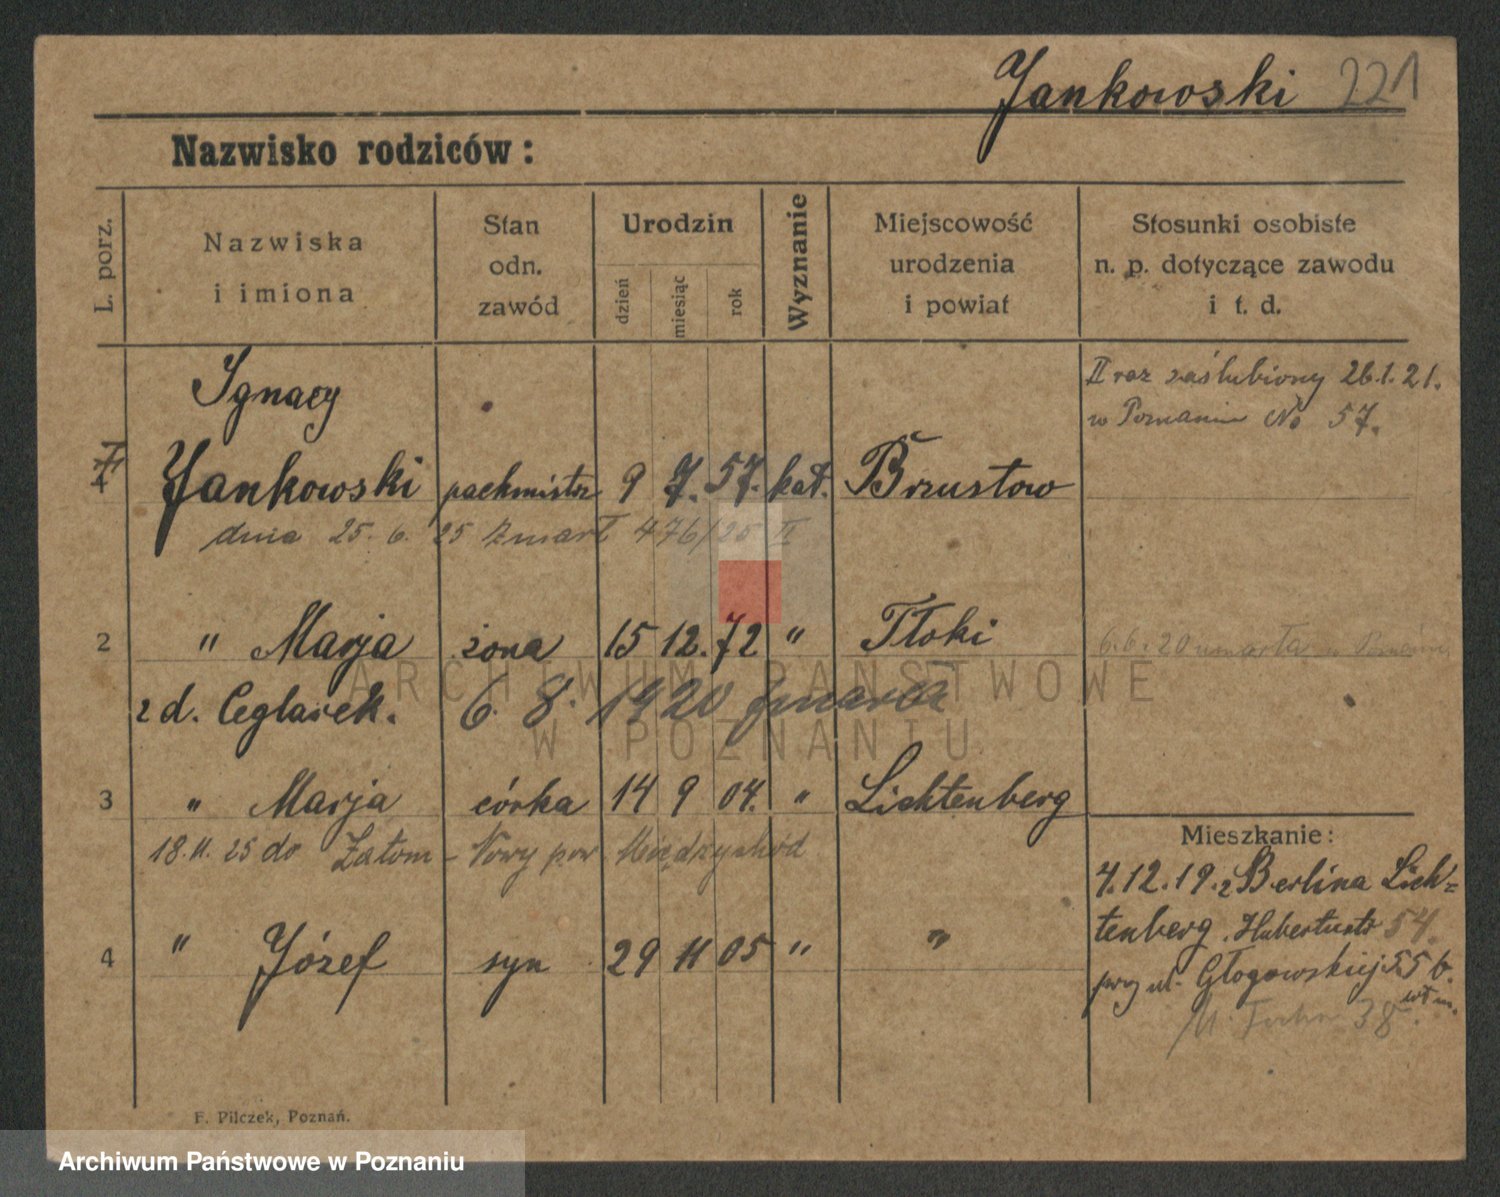 Jankowski 221
Nazwisko rodziców:
L. porz.
Nazwiska
i imiona
Stan
odn.
zawód
Urodzin
dzień
miesiąc
rok
Wyznanie
Miejscowość
urodzenia
i powiat
Stosunki osobiste
n. p. dotyczące zawodu
i t. d.
II raz zaślubiony 26.1.21.
w Poznaniu No 57.
Ignacy
1 Jankowski pachmistrz 9 7. 57. kat. Brzustow
dnia 25. 6. 25 zmarł 476/25 II
2 " Marja żona 15 12. 72 " Tłoki 6.6.20 umarła w Poznaniu
z d. Ceglarek. 6. 8. 1920 zmarła
3 " Marja córka 14 9 04. " Lichtenberg
18.11.25 do Zatom - Nowy pow. Międzychód
4 " Józef syn 29 11 05 " "
Mieszkanie:
4.12.19. z Berlina Lich=
tenberg. Hubertustr 54.
przy ul. Głogowskiej 55 b.
38.
F. Pilczek, Poznań.
ARCHIWUM PAŃSTWOWE
W POZNANIU
Archiwum Państwowe w Poznaniu